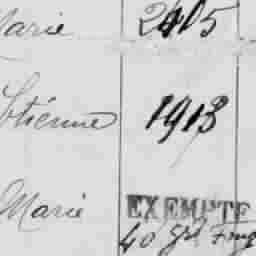 Marie 2405
Etienne 1913
Marie EXEMPTE
40 grs